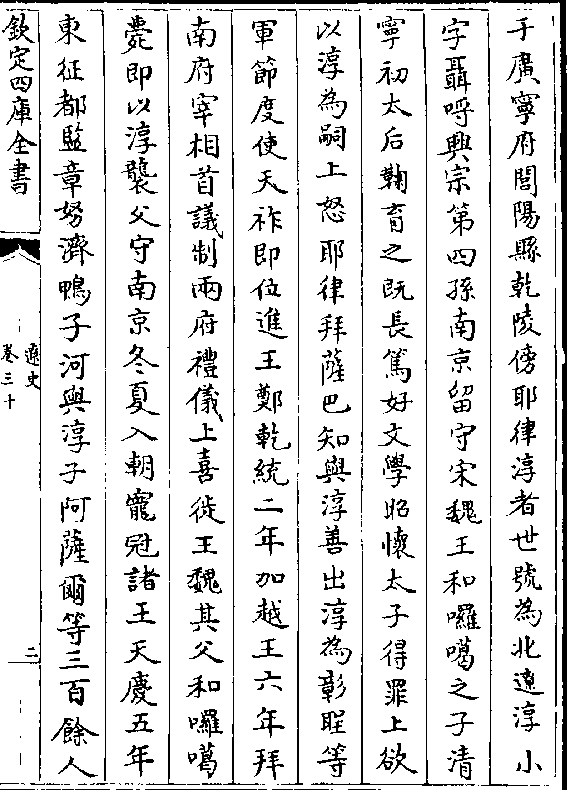 于廣寧府閭陽縣乾陵傍耶律淳者世號為北遼淳小
字聶哷興宗第四孫南京留守宋魏王和囉噶之子清
寧初太后鞠育之既長篤好文學昭懷太子得罪上欲
以淳為嗣上怒耶律拜薩巴知與淳善出淳為彰聖等
軍節度使天祚即位進王鄭乾統二年加越王六年拜
南府宰相首議制兩府禮儀上喜徙王魏其父和囉噶
薨即以淳襲父守南京冬夏入朝寵冠諸王天慶五年
東征都監章努濟鴨子河與淳子阿薩爾等三百餘人
欽定四庫全書
遼史
卷三十
二